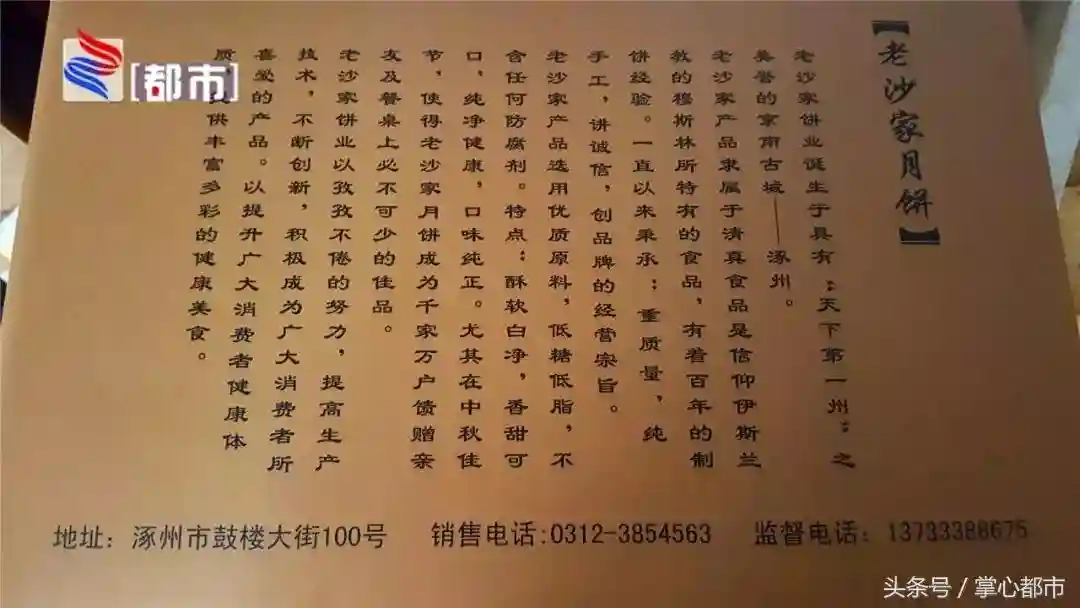 【老沙家月饼】
老沙家饼业诞生于具有:天下第一州:之
美誉的京南古城——涿州。
老沙家产品隶属于清真食品是信仰伊斯兰
教的穆斯林所特有的食品，有着百年的制
饼经验。一直以来秉承：重质量，纯
手工，讲诚信，创品牌的经营宗旨。
老沙家产品选用优质原料，低糖低脂，不
含任何防腐剂。特点：酥软白净，香甜可
口，纯净健康，口味纯正。尤其在中秋佳
节，使得老沙家月饼成为千家万户馈赠亲
友及餐桌上必不可少的佳品。
老沙家饼业以孜孜不倦的努力，提高生产
技术，不断创新，积极成为广大消费者所
喜爱的产品。以提升广大消费者健康体
质，供丰富多彩的健康美食。
地址：涿州市鼓楼大街100号 销售电话:0312-3854563 监督电话：13733388675
[都市]
头条号 / 掌心都市